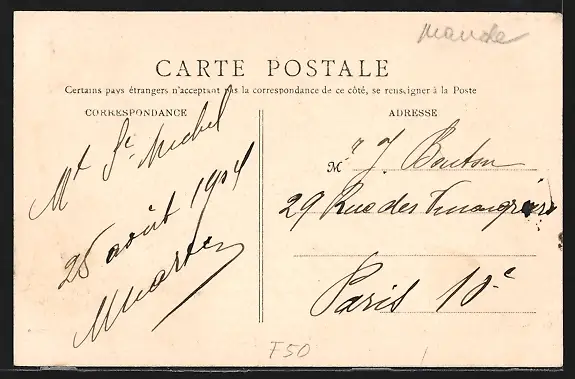 Manche
CARTE POSTALE
Certains pays étrangers n'acceptant pas la correspondance de ce côté, se renseigner à la Poste
CORRESPONDANCE
Mt St Michel
25 août 1904
ADRESSE
Mr J. Bouton
29 Rue des Vinaigriers
Paris 10e
F50